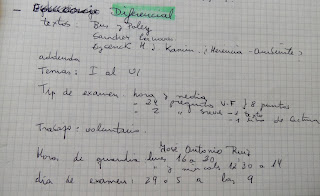 - Diferencial
textos. Bus y Poley
Sanchez Cánovas
Eysenck H. J. Kamin. (Herencia-Ambiente)
addenda
Temas: I al VI
Tip de examen. hora y media
- 24 preguntas V-F / 8 puntos
- 2 " 
Trabajo: voluntario.
José Antonio Ruiz
Horas de guardia: lunes 16 a 20,
y miercoles 12'30 a 14
día de examen: 29 o 5 a las 9